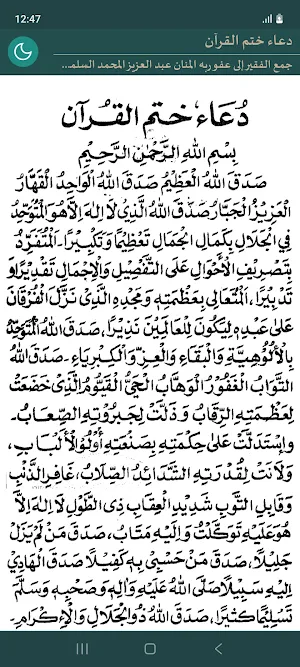 12:47
دعاء ختم القرآن
جمع الفقير إلى عفو ربه المنان عبد العزيز المحمد السلمـ...
دُعَاء خَتْمِ القُرآن
بِسْمِ اللهِ الرَّحْمٰنِ الرَّحِيْمِ
صَدَقَ اللهُ الْعَظِيْمُ صَدَقَ اللهُ الْوَاحِدُ الْقَهَّارُ
الْعَزِيْزُ الْجَبَّارُ صَدَقَ اللهُ الَّذِيْ لَا إِلٰهَ إِلَّا هُوَ الْمُتَوَحِّدُ
فِي الْجَلَالِ بِكَمَالِ الْجَمَالِ تَعْظِيْمًا وَتَكْبِيْرًا۔ الْمُتَفَرِّدُ
بِتَصْرِيْفِ الْأَحْوَالِ عَلَى التَّفْصِيْلِ وَالْإِجْمَالِ تَقْدِيْرًا وَ
تَدْبِيْرًا۔ الْمُتَعَالِي بِعَظَمَتِهٖ وَمَجْدِهِ الَّذِيْ نَزَّلَ الْفُرْقَانَ
عَلٰى عَبْدِهٖ لِيَكُوْنَ لِلْعَالَمِيْنَ نَذِيْرًا، صَدَقَ اللهُ الْمُتَوَحِّدُ
بِالْأُلُوْهِيَّةِ وَالْبَقَاءِ وَالْعِزِّ وَالْكِبْرِيَاءِ۔ صَدَقَ اللهُ
التَّوَّابُ الْغَفُوْرُ الْوَهَّابُ الْحَيُّ الْقَيُّوْمُ الَّذِيْ خَضَعَتْ
لِعَظَمَتِهِ الرِّقَابُ وَذَلَّتْ لِجَبَرُوْتِهِ الصِّعَابُ۔
وَاسْتَدَلَّتْ عَلٰى حِكْمَتِهٖ بِصَنْعَتِهٖ أُولُو الْأَلْبَابِ،
وَلَانَتْ لِقُدْرَتِهِ الشَّدَائِدُ الصِّلَابُ، غَافِرِ الذَّنْبِ
وَقَابِلِ التَّوْبِ شَدِيْدِ الْعِقَابِ ذِى الطَّوْلِ لَا إِلٰهَ إِلَّا
هُوَ عَلَيْهِ تَوَكَّلْتُ وَإِلَيْهِ مَتَابِ، صَدَقَ مَنْ لَمْ يَزَلْ
جَلِيْلًا، صَدَقَ مَنْ حَسْبِيْ بِهٖ كَفِيْلًا صَدَقَ الْهَادِيْ
إِلَيْهِ سَبِيْلًا صَلَّى اللهُ عَلَيْهِ وَاٰلِهٖ وَصَحْبِهٖ وَسَلَّمَ
تَسْلِيْمًا كَثِيْرًا، صَدَقَ اللهُ ذُو الْجَلَالِ وَالْإِكْرَامِ۔